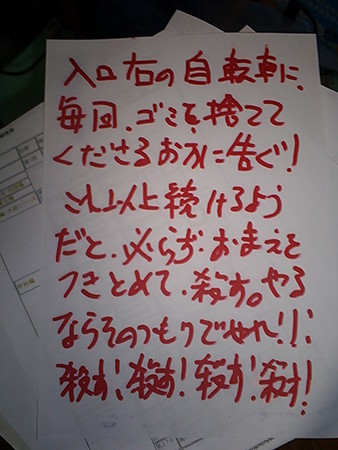 入口右の自転車に、
毎回、ゴミを捨てて
くださるお方に告ぐ!
これ以上続けるよう
だと、必らず、おまえを
つきとめて、殺す。やる
ならそのつもりでやれ!!
殺す!殺す!殺す!殺す!